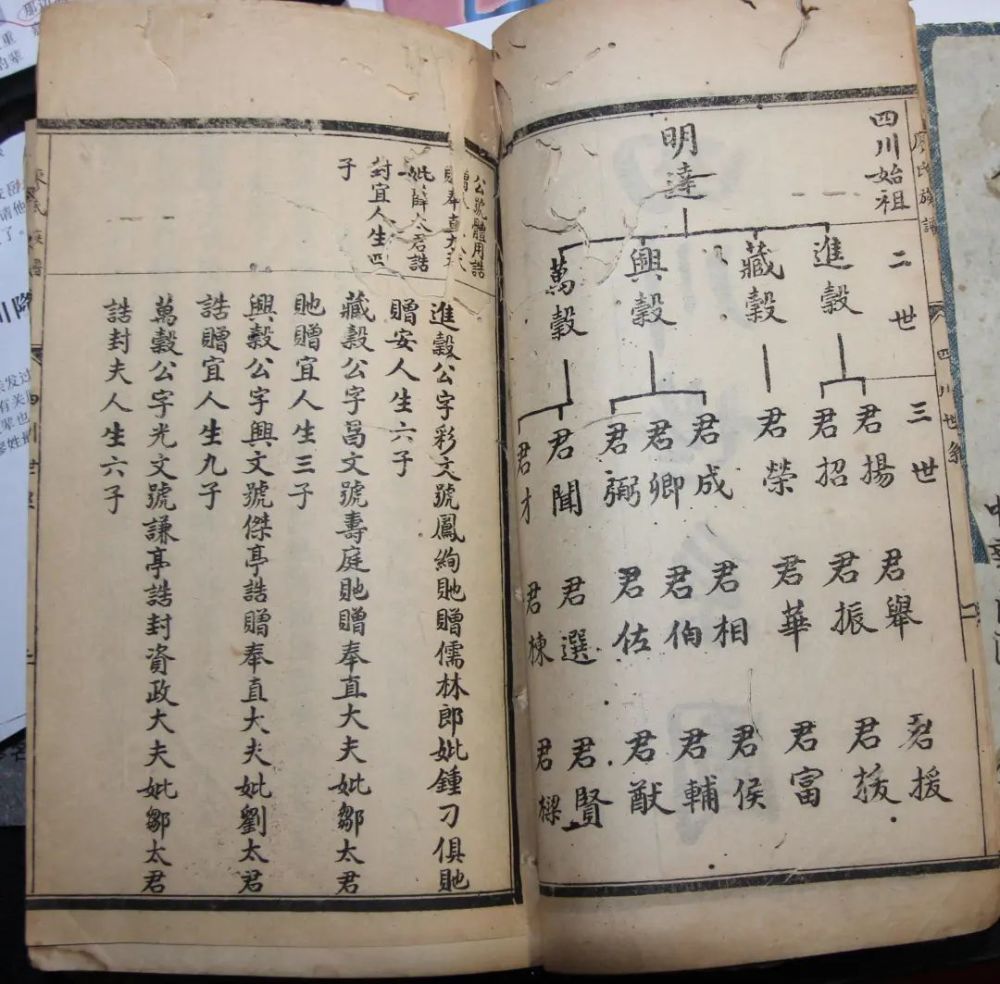 四川始祖
明達
二世
進穀
藏穀
興穀
萬穀
三世
君揚
君招
君榮
君成
君卿
君弼
君聞
君才
君舉
君振
君華
君相
君伯
君佐
君選
君棟
君援
君拔
君富
君侯
君輔
君猷
君賢
君樑
廖氏族譜
四川世系
公號體用誥
贈奉直大夫
妣薛太君誥
封宜人生四
子
進穀公字彩文號鳳絢貤贈儒林郎妣鍾刁俱貤
贈安人生六子
藏穀公字昌文號壽庭貤贈奉直大夫妣鄒太君
貤贈宜人生三子
興穀公字興文號傑亭誥贈奉直大夫妣劉太君
誥贈宜人生九子
萬穀公字光文號謙亭誥封資政大夫妣鄒太君
誥封夫人生六子